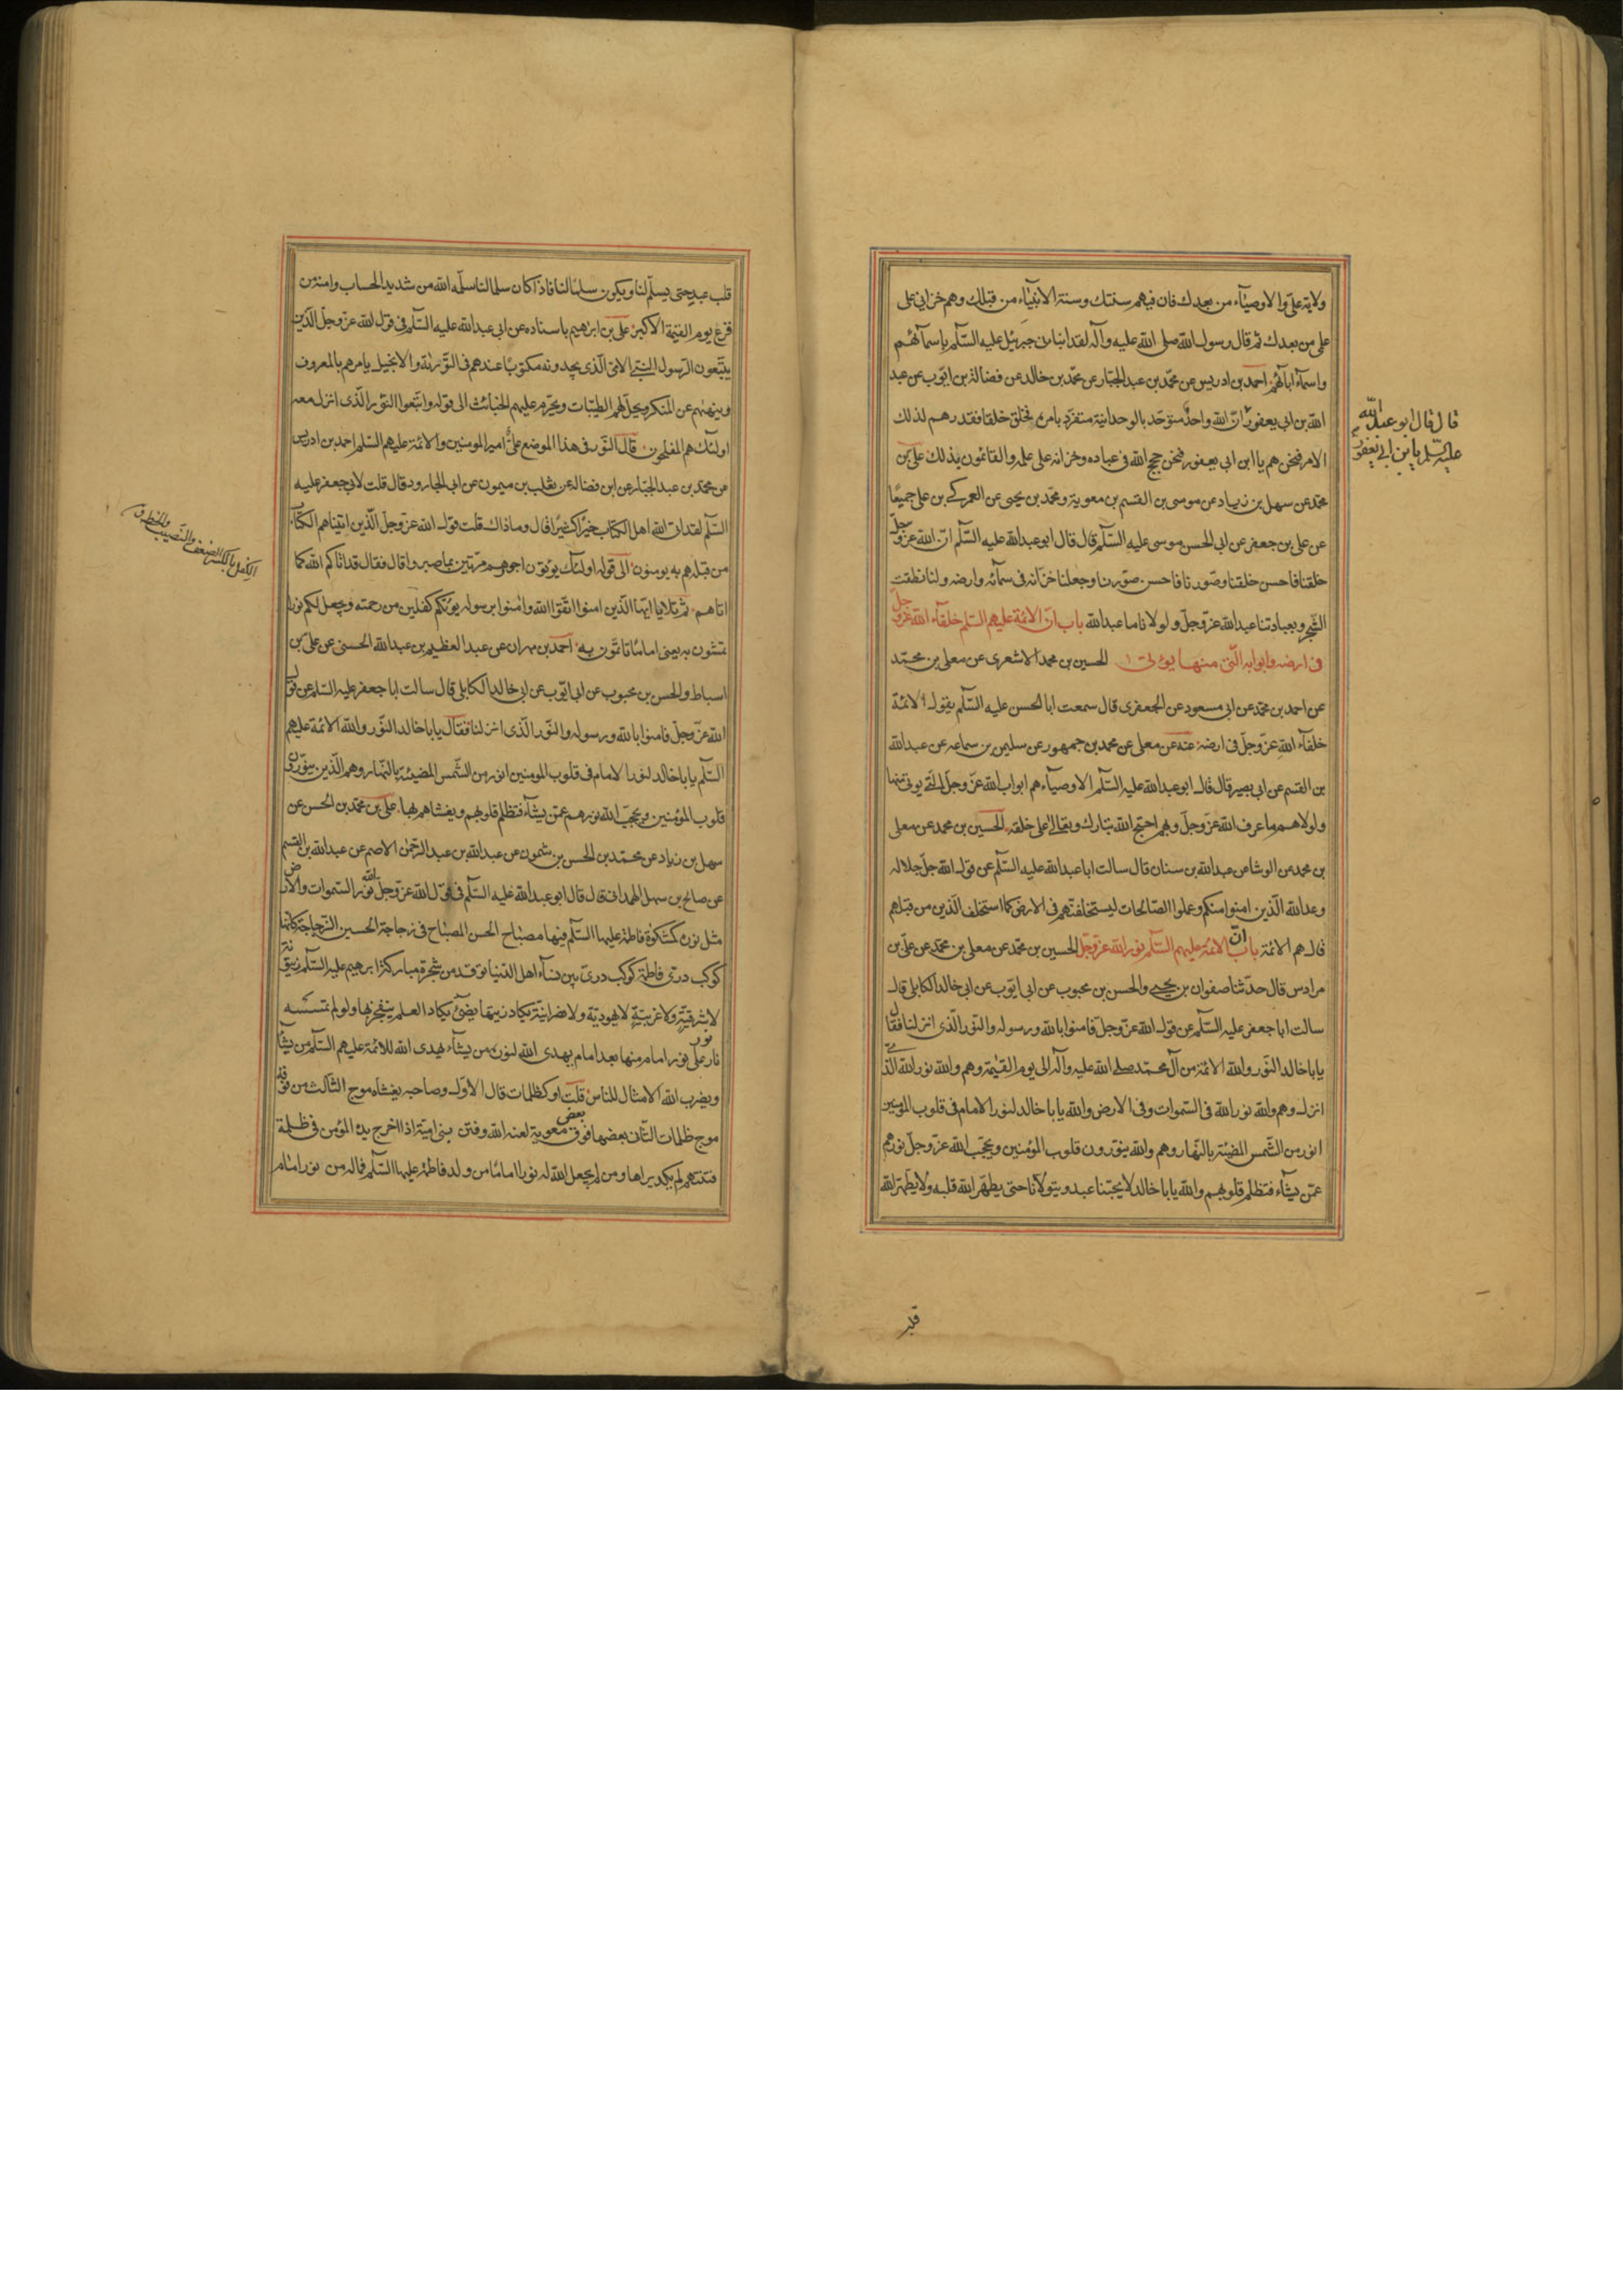 ولاية علي والاوصيآء من بعدك فان فيهم سنتك وسنة الانبيآء من قبلك وهم خزاني على
علمي من بعدك ثم قال رسول الله صلى الله عليه وآله لقد انباني جبرئيل عليه السّلم باسمآئهم
واسمآء ابآئهم احمد بن ادريس عن محمّد بن عبد الجبّار عن محمّد بن خالد عن فضالة بن ايّوب عن عبد
الله بن ابي يعفور انّ الله واحد متوحّد بالوحدانية متفرّد بامره فخلق خلقا فقدرهم لذلك
الامر فنحن هم يا ابن ابي يعفور فنحن حجج الله في عباده وخزانه على علمه والقائمون بذلك علي بن
محمّد عن سهل بن زياد عن موسى بن القسم بن معوية ومحمّد بن يحيى عن العمركي بن علي جميعًا
عن علي بن جعفر عن ابي الحسن موسى عليه السّلم قال قال ابو عبد الله عليه السّلم انّ الله عزّ وجلّ
خلقنا فاحسن خلقنا وصّورنا فاحسن صوّرنا وجعلنا خزّانه في سمآئه وارضه ولنا نطقت
الشجر وبعبادتنا عبد الله عزّ وجلّ ولولانا ما عبد الله باب انّ الائمة عليهم السّلم خلفآء الله عزّ وجلّ
في ارضه وابوابه الّتي منها يؤتى الحسين بن محمد الاشعري عن معلى بن محمّد
عن احمد بن محمّد عن ابي مسعود عن الجعفري قال سمعت ابا الحسن عليه السّلم يقول الائمّة
خلفآء الله عزّ وجلّ في ارضه عنه عن معلى عن محمد بن جمهور عن سليمن بن سماعه عن عبد الله
بن القسم عن ابي بصير قال قال ابو عبد الله عليه السّلم الاوصيآء هم ابواب الله عزّ وجلّ التي يوتى منها
ولولاهم ما عرف الله عزّ وجلّ وبهم احتج الله تبارك وتعالى على خلقه الحسين بن محمد عن معلى
بن محمد عن الوشا عن عبد الله بن سنان قال سالت ابا عبد الله عليه السّلم عن قول الله جلّ جلاله
وعد الله الّذين امنوا منكم وعملوا الصّالحات ليستخلفنّهم في الارض كما استخلف الّذين من قبلهم
قال هم الائمّة باب انّ الائمّة عليهم السّلم نور الله عزّ وجلّ الحسين بن محمّد عن معلى بن محمّد عن علي بن
مرادس قال حدّثنا صفوان بن يحيى والحسن بن محبوب عن ابي ايّوب عن ابي خالد الكابلي قال
سالت ابا جعفر عليه السّلم عن قول الله عزّ وجلّ فامنوا بالله ورسوله والنّور الّذي انزلنا فقال
يا با خالد النّور والله الائمّة من آل محمّد صلى الله عليه وآله الى يوم القيٰمة وهم والله نور الله الّذي
انزل وهم والله نور الله في السّموات وفي الارض والله يا با خالد لنور الامام في قلوب المومنين
انور من الشّمس المضيئة بالنّهار وهم والله ينوّرون قلوب المؤمنين ويحجب الله عزّ وجلّ نورهم
عمّن يشآء فتظلم قلوبهم والله يا با خالد لا يحبّنا عبد ويتولّانا حتى يطهّر الله قلبه ولا يطهّر الله
قال قال ابو عبد الله
عليه السّلم يا بن ابي يعفور
قلب
قلب عبد حتى يسلّم لنا ويكون سلمًا لنا فاذا كان سلما لنا سلّمه الله من شديد الحساب وامنه من
فزع يوم القيمة الاكبر علي بن ابرهيم باسناده عن ابي عبد الله عليه السّلم في قول الله عزّ وجلّ الّذين
يتّبعون الرّسول النبيّ الامّي الّذي يجدونه مكتوبًا عندهم في التّوراة والانجيل يامرهم بالمعروف
وينهٰهم عن المنكر ويحلّ لهم الطيّبات ويحرّم عليهم الخبائث الى قوله واتّبعوا النّور الّذي انزل معه
اولئك هم المفلحون قال النّور في هذا الموضع عليّ امير المومنين والائمّة عليهم السّلم احمد بن ادريس
عن محمّد بن عبد الجبّار عن ابن فضال عن ثعلب بن ميمون عن ابي الجارود قال قلت لابي جعفر عليه
السّلم لقد اتى الله اهل الكتاب خيرًا كثيرًا قال وما ذاك قلت قول الله عزّ وجلّ الّذين اتيناهم الكتاب
من قبله هم به يومنون الى قوله اولئك يؤتون اجرهم مرّتين بما صبروا قال فقال قد اتاكم الله كما
اتاهم ثم تلا يا ايّها الّذين امنوا اتّقوا الله وامنوا برسوله يؤتكم كفلين من رحمته ويجعل لكم نورا
تمشون به يعني امامًا تاتمّون به احمد بن مهران عن عبد العظيم بن عبد الله الحسني عن علي بن
اسباط والحسن بن محبوب عن ابي ايّوب عن ابي خالد الكابلي قال سالت ابا جعفر عليه السّلم عن قول
الله عزّ وجلّ فامنوا بالله ورسوله والنّور الّذي انزلنا فقال يا با خالد النّور والله الائمة عليهم
السّلم يا با خالد لنور الامام في قلوب المومنين انور من الشّمس المضيئة بالنّهار وهم الّذين ينوّرون
قلوب المؤمنين ويحجب الله نورهم عمّن يشآء فتظلم قلوبهم ويغشاهم بها علي بن محمّد بن الحسن عن
سهل بن زياد عن محمّد بن الحسن بن شمون عن عبد الله بن عبد الرّحمٰن الاصم عن عبد الله بن القسم
عن صالح بن سهل الهمداني قال قال ابو عبد الله عليه السّلم في قول الله عزّ وجلّ الله نور السّموات والارض
مثل نوره كمشكٰوة فاطمة عليها السّلم فيها مصباح الحسن المصباح في زجاجة الحسين الزّجاجة كانّها
كوكب درّي فاطمة كوكب درّي بين نسآء اهل الدّنيا توقد من شجرة مباركة ابرهيم عليه السّلم زيتونة
لا شرقيّة ولا غربيّة لا يهوديّة ولا نصرانيّة يكاد زيتها يضيء يكاد العلم ينفجر بها ولو لم تمسسه
نار نور على نور امام منها بعد امام يهدي الله لنوره من يشآء يهدي الله للائمة عليهم السّلم من يشآء
ويضرب الله الامثال للناس قلت او كظلمات قال الاوّل وصاحبه يغشاه موج الثّالث من فوقه
موج ظلمات الثّان بعضها فوق بعض معوية لعنه الله وفتن بني اميّة اذا اخرج يده المؤمن في ظلمة
فتنتهم لم يكد يراها ومن لم يجعل الله له نورا امامًا من ولد فاطمة عليها السّلم فما له من نور امام
الكفل بالكسر الضعف والنّصيب والحظ ق